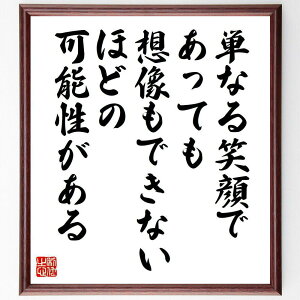 単なる笑顔で
あっても
想像もできない
ほどの
可能性がある